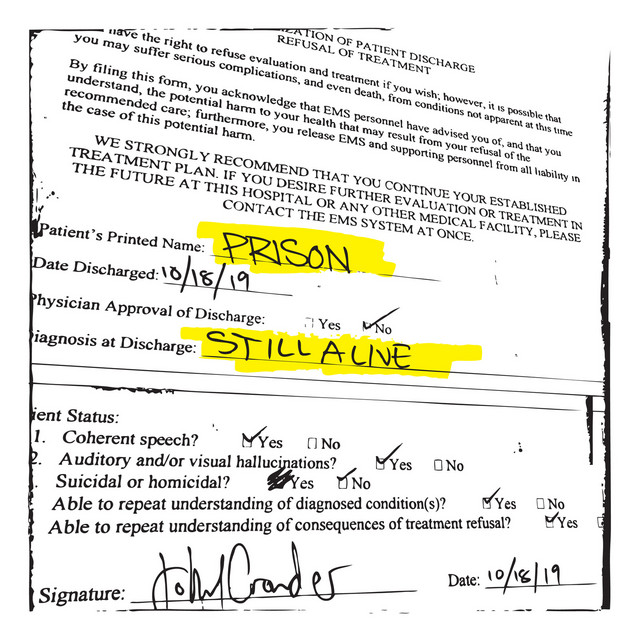 ATION OF PATIENT DISCHARGE
REFUSAL OF TREATMENT
have the right to refuse evaluation and treatment if you wish; however, it is possible that
you may suffer serious complications, and even death, from conditions not apparent at this time
By filing this form, you acknowledge that EMS personnel have advised you of, and that you
understand, the potential harm to your health that may result from your refusal of the
recommended care; furthermore, you release EMS and supporting personnel from all liability in
the case of this potential harm.
WE STRONGLY RECOMMEND THAT YOU CONTINUE YOUR ESTABLISHED
TREATMENT PLAN. IF YOU DESIRE FURTHER EVALUATION OR TREATMENT IN
THE FUTURE AT THIS HOSPITAL OR ANY OTHER MEDICAL FACILITY, PLEASE
CONTACT THE EMS SYSTEM AT ONCE.
Patient's Printed Name: PRISON
Date Discharged: 10/18/19
Physician Approval of Discharge: Yes No
iagnosis at Discharge: STILL ALIVE
ient Status:
1. Coherent speech? Yes No
2. Auditory and/or visual hallucinations? Yes No
Suicidal or homicidal? Yes No
Able to repeat understanding of diagnosed condition(s)? Yes No
Able to repeat understanding of consequences of treatment refusal? Yes
Signature:
Date: 10/18/19